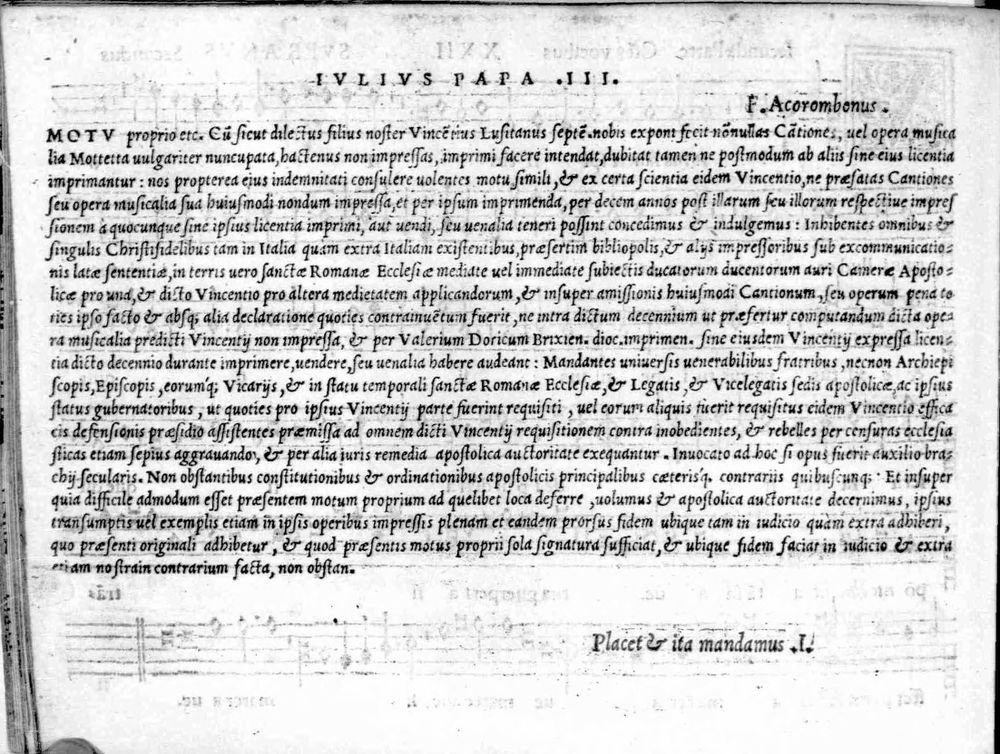 IVLIVS PAPA .III.
F. Acorombonus .
MOTV proprio etc. Cũ sicut dilectus filius noster Vincẽtius Lusitanus septẽ.nobis expont fecit nõnullas Cãtiones, uel opera musica
lia Mottetta uulgariter nuncupata, hactenus non impressas, imprimi facere intendat, dubitat tamen ne postmodum ab aliis sine eius licentia
imprimantur : nos propterea eius indemnitati consulere uolentes motu simili, & ex certa scientia eidem Vincentio, ne præfatas Cantiones
seu opera musicalia sua huiusmodi nondum impressa, et per ipsum imprimenda, per decem annos post illarum seu illorum respectiue impres
sionem à quocunque sine ipsius licentia imprimi, aut uendi, seu uenalia teneri possint concedimus & indulgemus : Inhibentes omnibus &
singulis Christifidelibus tam in Italia quam extra Italiam existentibus, præsertim bibliopolis, & alijs impressoribus sub excommunicatio-
nis latæ sententiæ, in terris uero sanctæ Romanæ Ecclesiæ mediate uel immediate subiectis ducatorum ducentorum auri Cameræ Aposto-
licæ pro una, & dicto Vincentio pro altera medietatem applicandorum, & insuper amissionis huiusmodi Cantionum, seu operum pena to
ties ipso facto & absq; alia declaratione quoties contrauuẽtum fuerit, ne intra dictum decennium ut præfertur computandum dicta ope-
ra musicalia predicti Vincentij non impressa, & per Valerium Doricum Brixien. dioc. imprimen. sine eiusdem Vincentij expressa licen-
tia dicto decennio durante imprimere, uendere, seu uenalia habere audeant : Mandantes uniuersis uenerabilibus fratribus, necnon Archiepi
scopis, Episcopis, eorumq; Vicarijs, & in statu temporali sanctæ Romanæ Ecclesiæ, & Legatis, & Vicelegatis sedis apostolicæ, ac ipsius
status gubernatoribus, ut quoties pro ipsius Vincentij parte fuerint requisiti, uel eorum aliquis fuerit requisitus eidem Vincentio effica
cis defensionis præsidio assistentes præmissa ad omnem dicti Vincentij requisitionem contra inobedientes, & rebelles per censuras ecclesia
sticas etiam sepius aggrauando, & per alia iuris remedia apostolica auctoritate exequantur . Inuocato ad hoc si opus fuerit auxilio bra-
chij secularis. Non obstantibus constitutionibus & ordinationibus apostolicis principalibus cæterisq. contrariis quibuscunq; : Et insuper
quia difficile admodum esset præsentem motum proprium ad quelibet loca deferre, uolumus & apostolica auctoritate decernimus, ipsius
transumptis uel exemplis etiam in ipsis operibus impressis plenam et eandem prorsus fidem ubique tam in iudicio quam extra adhiberi,
quo præsenti originali adhibetur, & quod præsentis motus proprii sola signatura sufficiat, & ubique fidem faciat in iudicio & extra
etiam nostra in contrarium facta, non obstan.
Placet & ita mandamus .I.